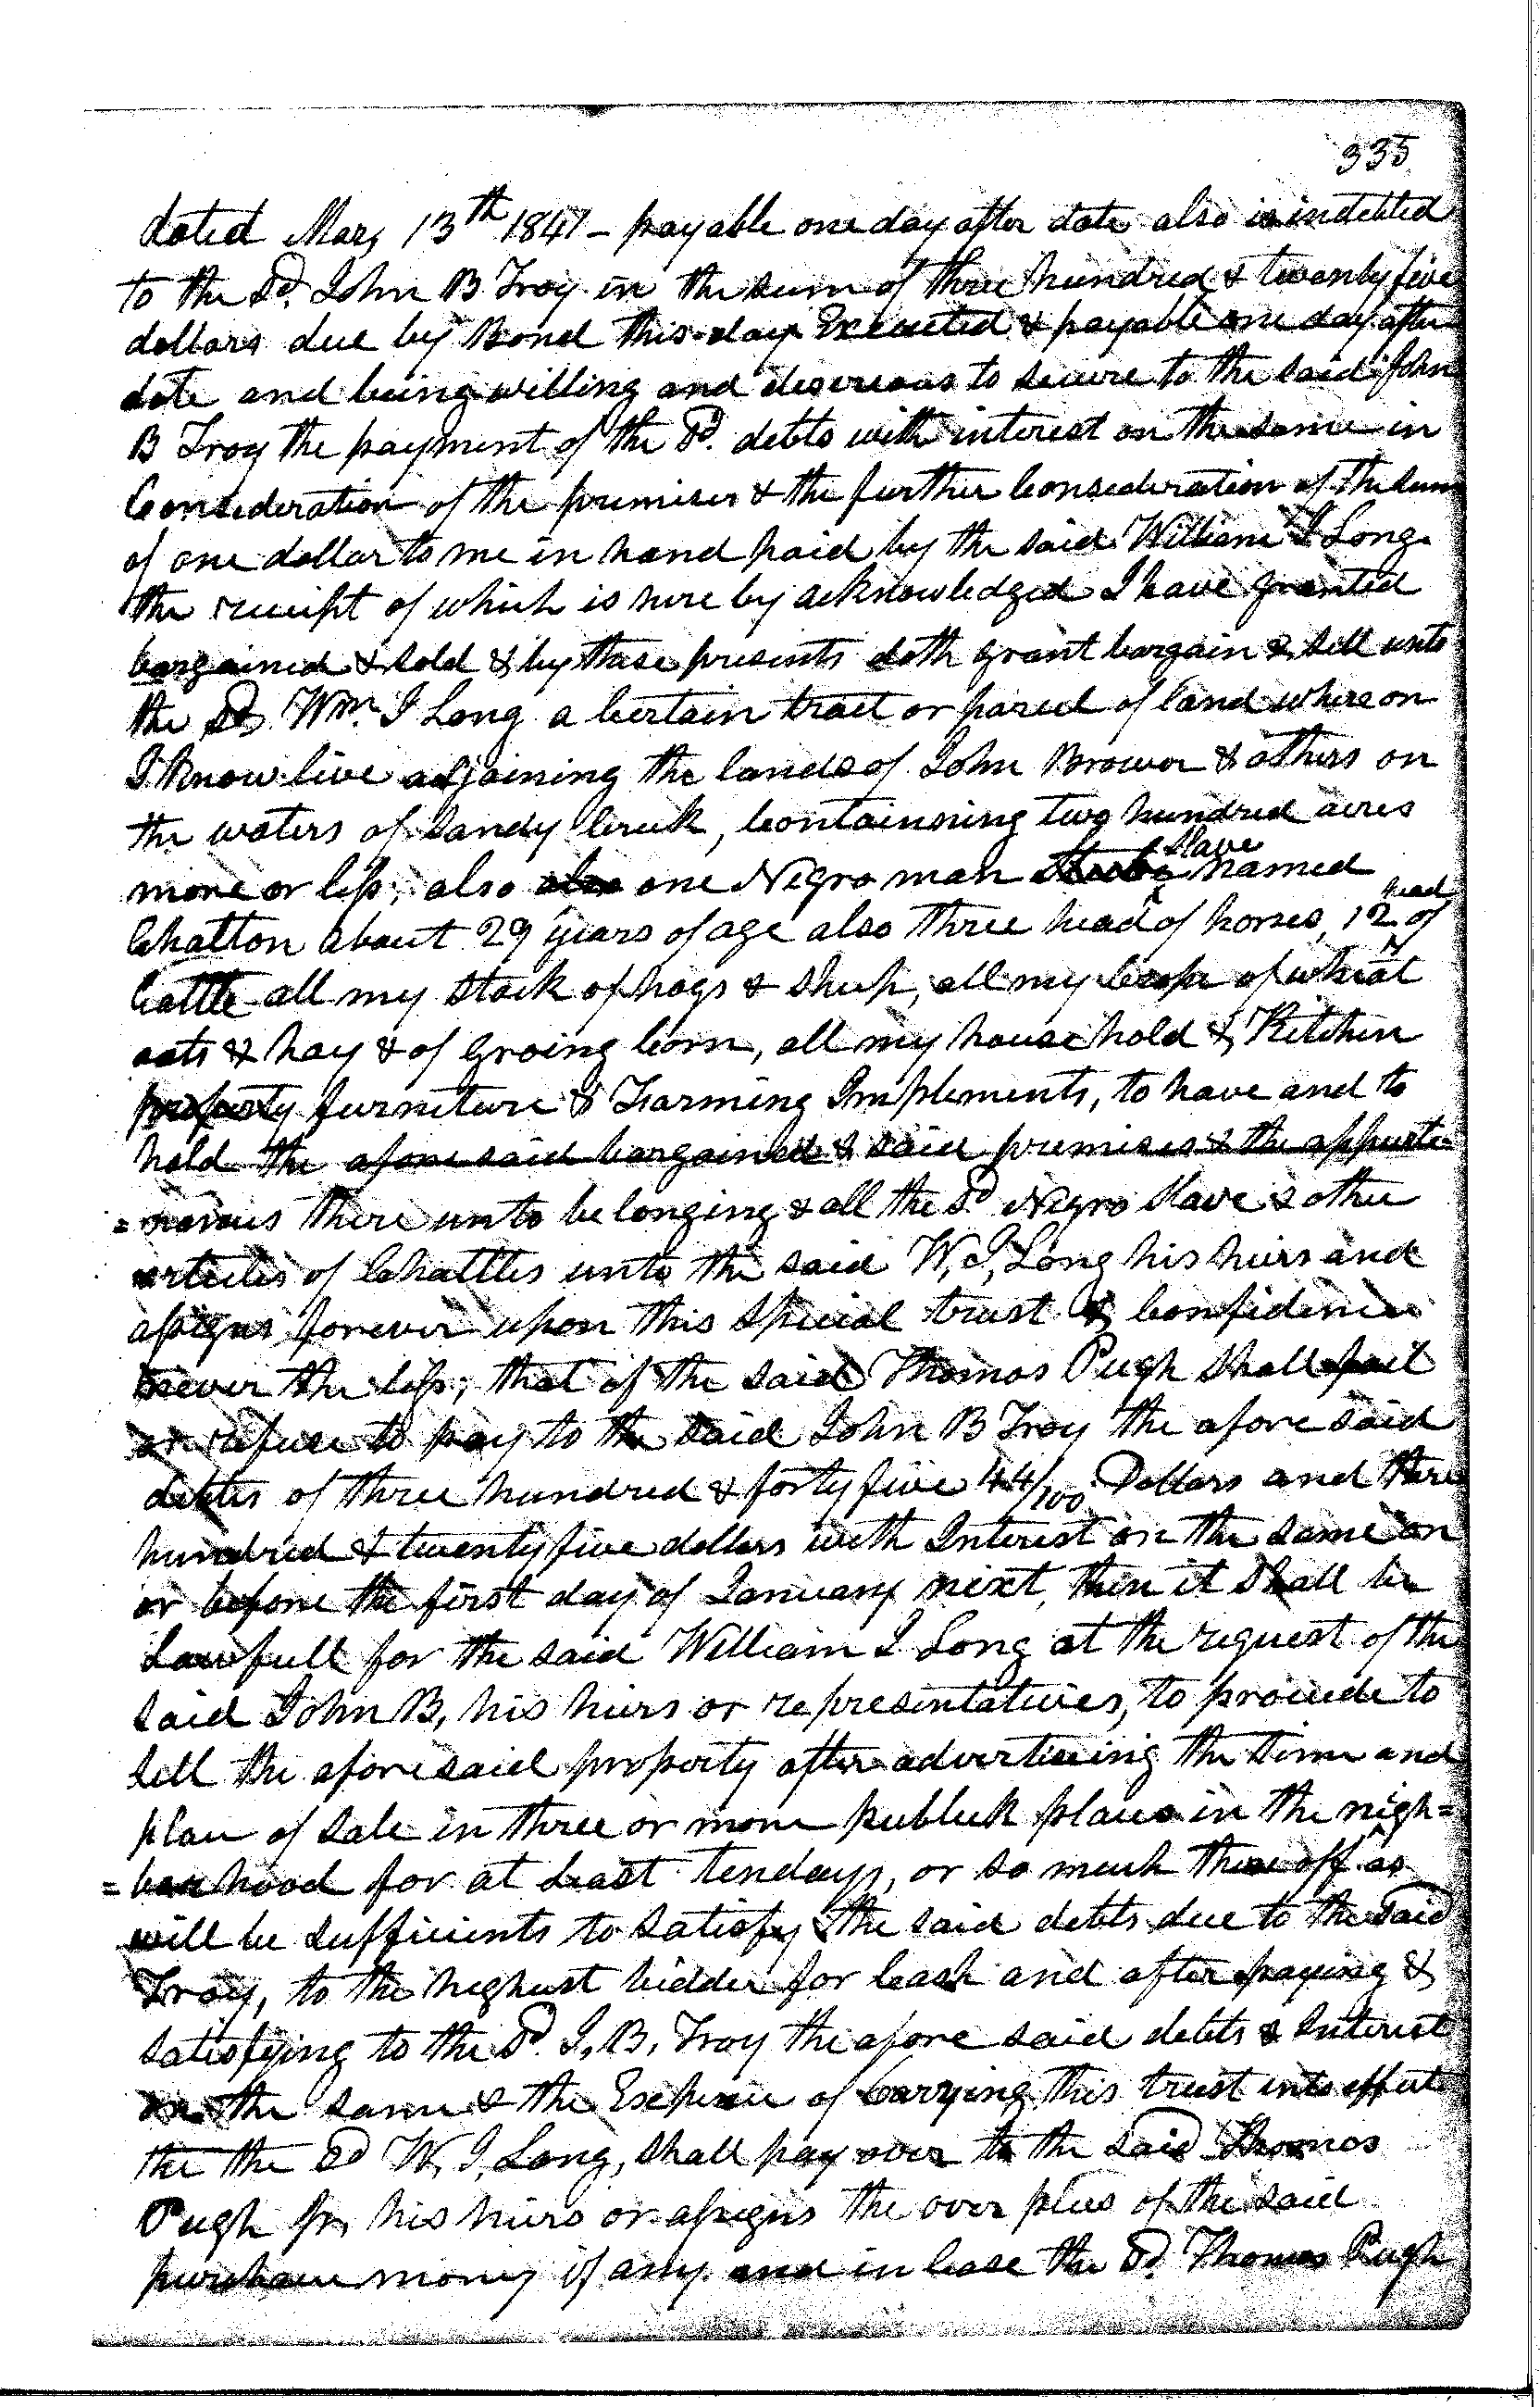 335
dated May 13th 1847 - payable one day after date also is indebted
to the Sd. John B Troy in the sum of three hundred & twenty five
dollars due by Bond this day Executed & payable one day after
date and being willing and desereous to secure to the said John
B Troy the payment of the Sd. debts with interest on the same in
Consideration of the premises & the further Consideration of the sum
of one dollar to me in hand paid by the said William I Long
the receipt of which is here by acknowledged I have granted
bargained & sold & by these presents doth grant bargain & sell unto
the Sd Wm. I Long a Certain tract or parcel of land where on
I know live adjoining the lands of John Brower & others on
the waters of Sandy Creek, Containning two hundred acres
more or less, also one Negro man slave named
Chatton about 29 years of age also three head of horses, 12 head of
Cattle all my stock of hogs & sheep, all my Crop of wheat
oats & hay & of groing Corn, all my house hold & Kitchin
furniture & Farming Impliments, to have and to
hold the afore said bargained & said premises & the appurte-
=nances there unto belonging & all the Sd Negro slave & other
articles of Chattles unto the said W, I, Long his heirs and
assigns forever upon this Special trust & Confidence
never the less, that if the said Thomas Pugh shall fail
or refuse to pay to the said John B Troy the afore said
debts of three hundred & forty five 44/100 Dollars and three
hundred & twenty five dollars with Interest on the same on
or before the first day of January next, then it shall be
Lawfull for the said William I Long at the request of the
said John B, his heirs or representatives, to proceede to
sell the aforesaid property after adverticeing the time and
place of sale in three or more publick places in the nigh=
=bour hood for at least ten days, or so much there off as
will be sufficients to satisfy the said debts due to the said
Troy, to the highest bidder for Cash and after paying &
satisfying to the Sd. J, B, Troy the afore said debts & Interest
on the same & the Expense of Carrying this trust into effect
the the Sd W, I, Long, shall pay over to the said Thomas
Pugh his heirs or assigns the over plus of the said
purchase money if any and in Case the Sd. Thomas Pugh